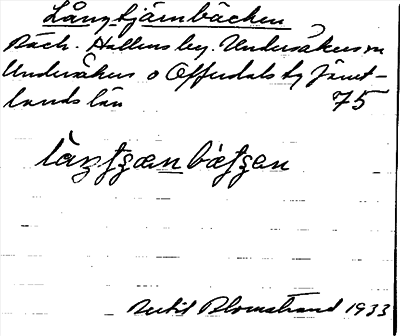 Långtjärnbäcken
Bäck. Hallens by. Undersåkers sn
Undersåkers o Offerdals tg Jämt-
lands län 75
Bertil Blomstrand 1933